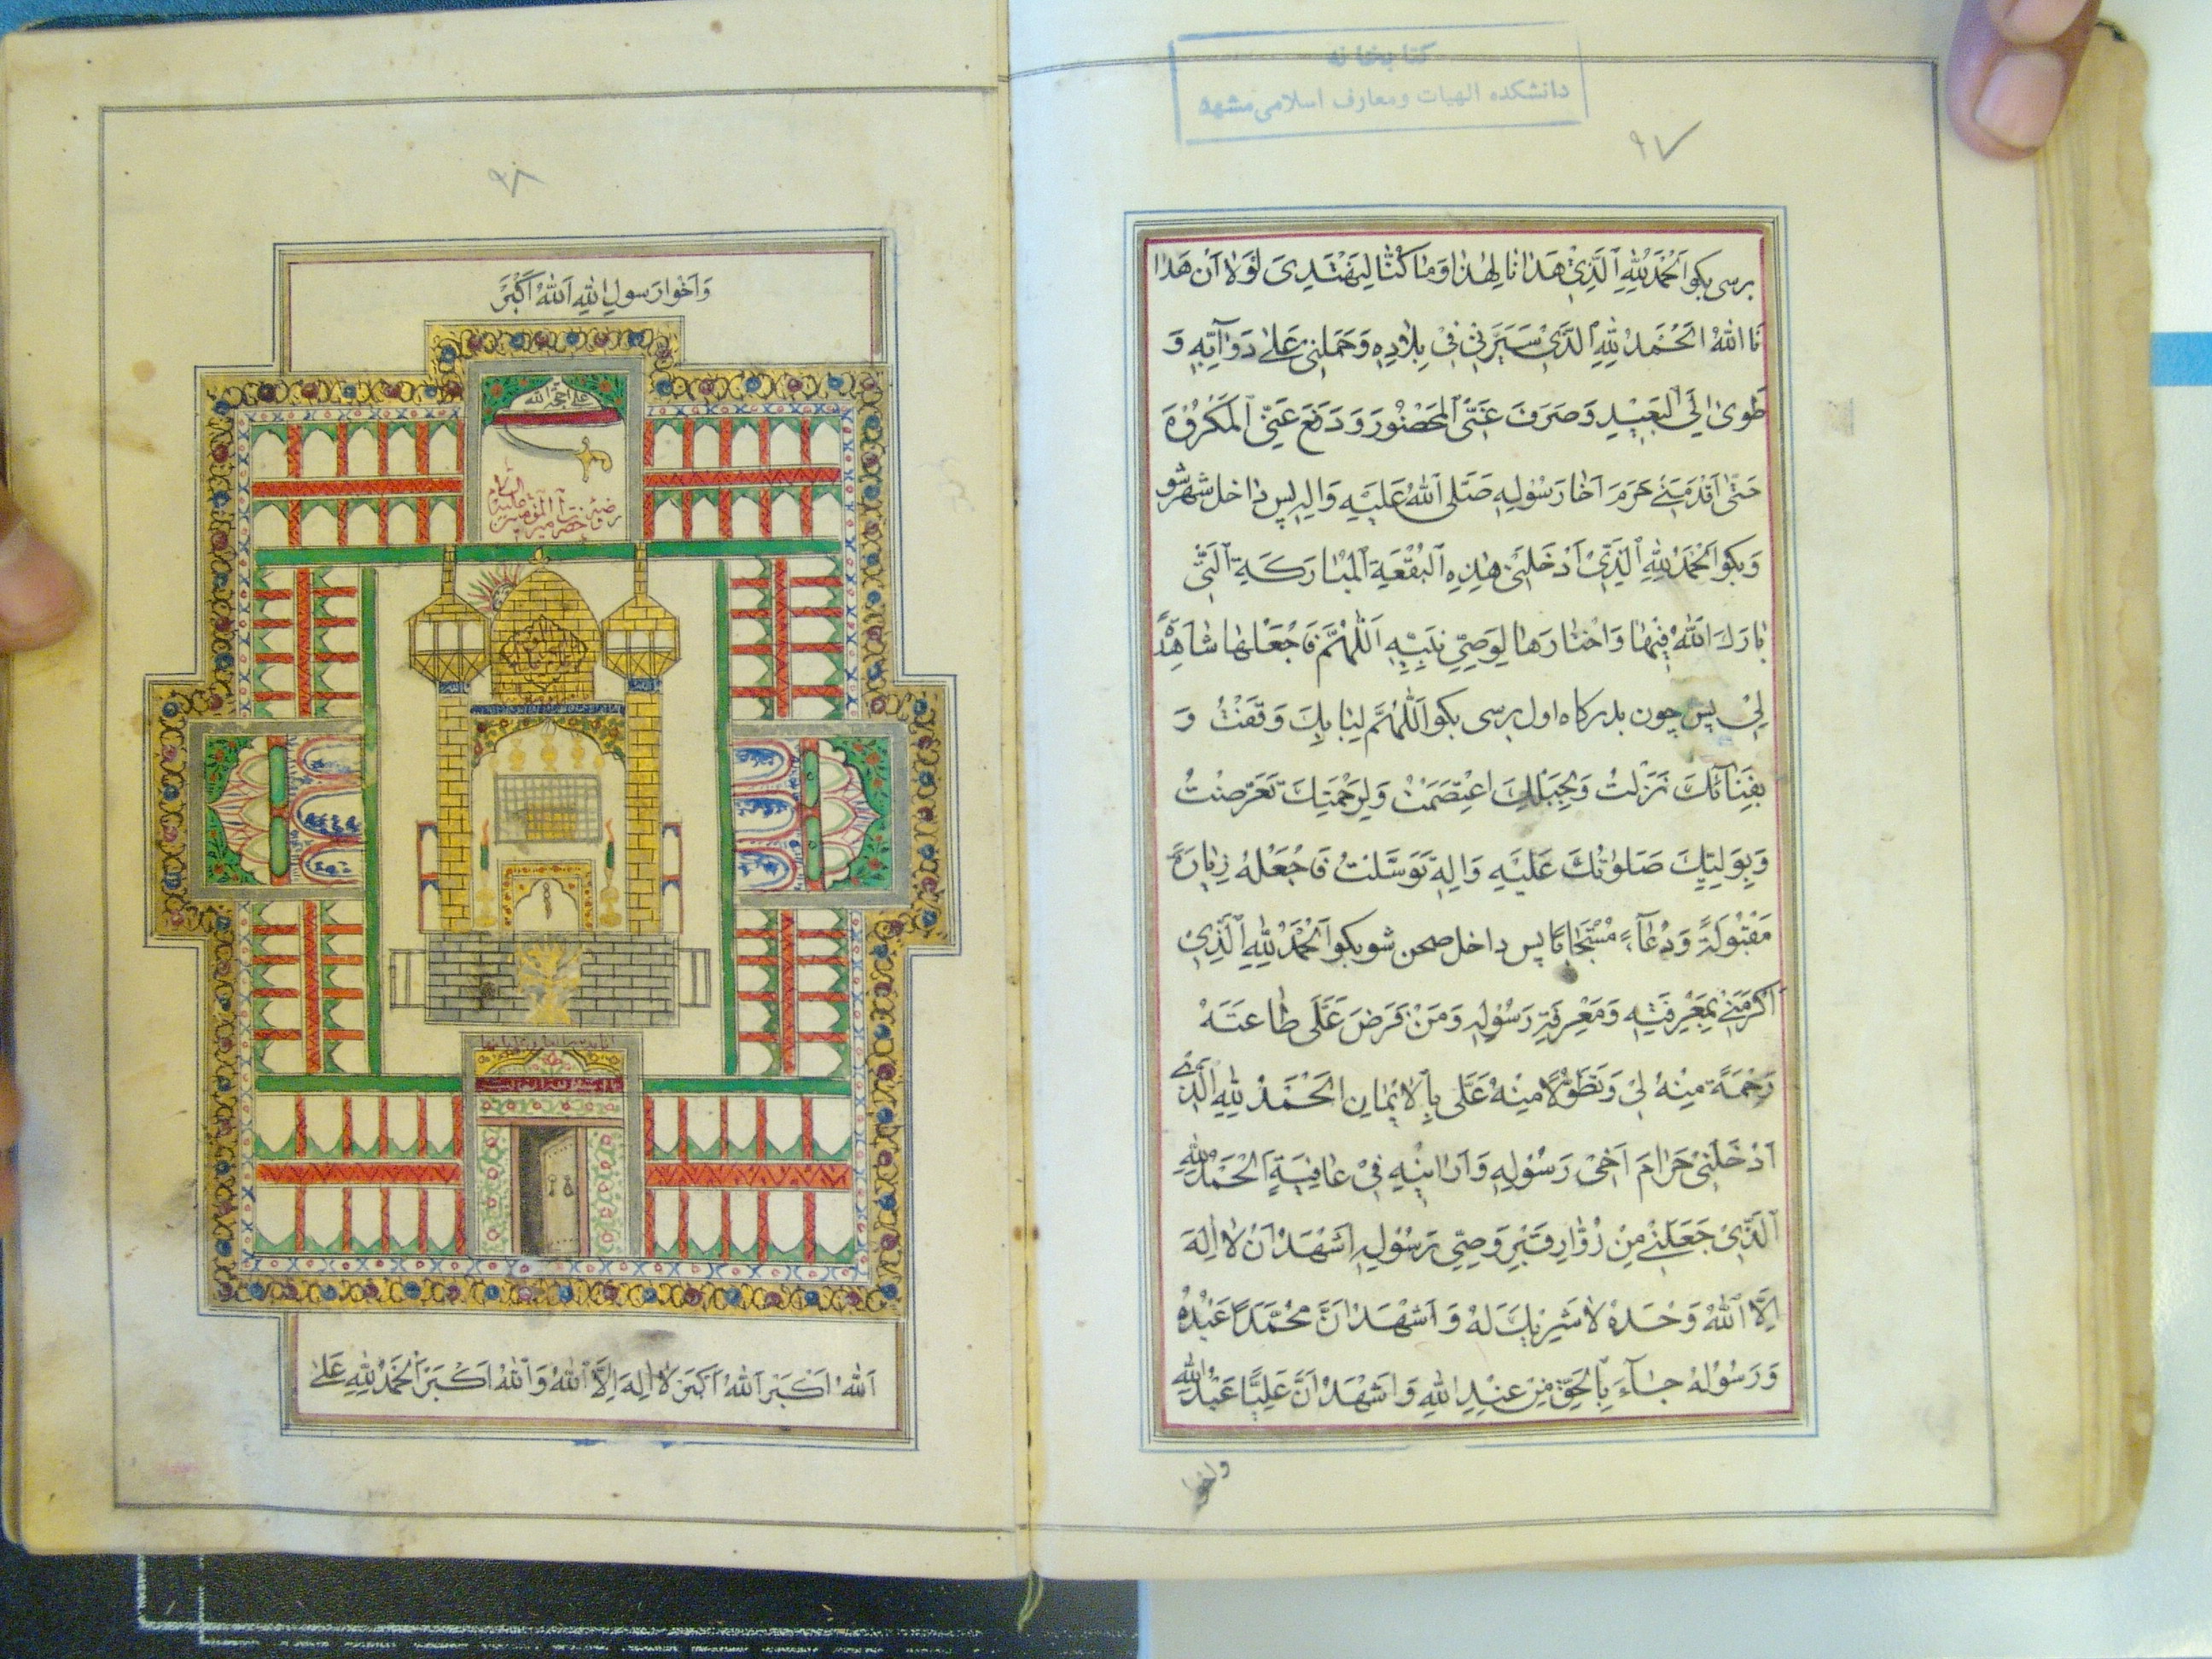 كتابخانه
دانشكده الهيات ومعارف اسلامى مشهد
۹۷
برسى بكو اَلْحَمْدُ لِلّٰهِ الَّذِىْ هَدٰانٰا لِهٰذٰا وَمٰا كُنّٰا لِيَهْتَدِىَ لَوْلاٰ اَنْ هَدٰا
نَا اللّٰهُ اَلْحَمْدُ لِلّٰهِ الَّذَىْ سَيَّرَنِىْ فِىْ بِلاٰدِهِ وَحَمَلَنِىْ عَلىٰ دَوٰآبِّهِ وَ
طَوىٰ اِلَىَ الْبَعِيْدِ وَصَرَفَ عَنّىَ الْمَحْضُورَ وَدَفَعَ عَنِّىَ الْمَكْرُوْهَ
حَتّٰى اَقْدَمَنِىْ حَرَمَ اَخٰا رَسُوْلِهِ صَلَّى اللّٰهُ عَلَيْهِ وَالِهِ پس دٰاخل شهر شو
وَبكو اَلْحَمْدُ لِلّٰهِ الَّذِىْ اَدْخَلَنِىْ هٰذِهِ الْبُقْعَةِ الْمُبٰارَكَةِ الَّتِىْ
بٰارَكَ اللّٰهُ فِيْهٰا وَاخْتٰارَهٰا لِوَصِىِّ نَبِيِّهِ اَللّٰهُمَّ فَاجْعَلْهٰا شٰاهِدَةً
لِىْ پس چون بدركاه اول برسى بكو اَللّٰهُمَّ لِبٰابِكَ وَقَفْتُ وَ
بِفِنٰآئِكَ نَزَلْتُ وَبِحَبْلِكَ اعْتَصَمْتُ وَلِرَحْمَتِكَ تَعَرَّضْتُ
وَبِوَلِيِّكَ صَلَوٰتُكَ عَلَيْهِ وَالِهِ تَوَسَّلْتُ فَاجْعَلْهُ زِيٰارَةً
مَقْبُولَةً وَدُعٰآءً مُسْتَجٰابًا پس داخل صحن شو بكو اَلْحَمْدُ لِلّٰهِ الَّذِىْ
اَكْرَمَنِىْ بِمَعْرِفَتِهِ وَمَعْرِفَةِ رَسُوْلِهِ وَمَنْ فَرَضَ عَلَّى طٰاعَتَهُ
رَحْمَةً مِنْهُ لِىْ وَتَطَوُّلاً مِنْهُ عَلَّى بِالْاٖيْمٰانِ اَلْحَمْدُ لِلّٰهِ الَّذِىْ
اَدْخَلَنِىْ حَرٰامَ اَخِىْ رَسُوْلِهِ وَاَرٰانِيْهِ فِىْ عٰافِيَةٍ اَلْحَمْدُ لِلّٰهِ
الَّذِىْ جَعَلَنِىْ مِنْ زُوّٰارِ قَبْرِ وَصِىِّ رَسُوْلِهِ اَشْهَدُ اَنْ لاٰ اِلٰهَ
اِلاَّ اللّٰهُ وَحْدَهُ لاٰ شَرِيْكَ لَهُ وَ اَشْهَدُ اَنَّ مُحَمَّدًا عَبْدُهُ
وَرَسُوْلُهُ جٰآءَ بِالْحَقِّ مِنْ عِنْدِ اللّٰهِ وَاَشْهَدُ اَنَّ عَلِيًّا عَبْدُ اللّٰهِ
واخوا
۹۸
وَاَخُوا رَسولِ اللّٰهِ اَللّٰهُ اَكْبَرُ
اَللّٰهُ اَكْبَرُ اَللّٰهُ اَكْبَرُ لاٰ اِلهَ اِلاَّ اللّٰهُ وَاللّٰهُ اَكْبَرُ اَلْحَمْدُ لِلّٰهِ عَلىٰ